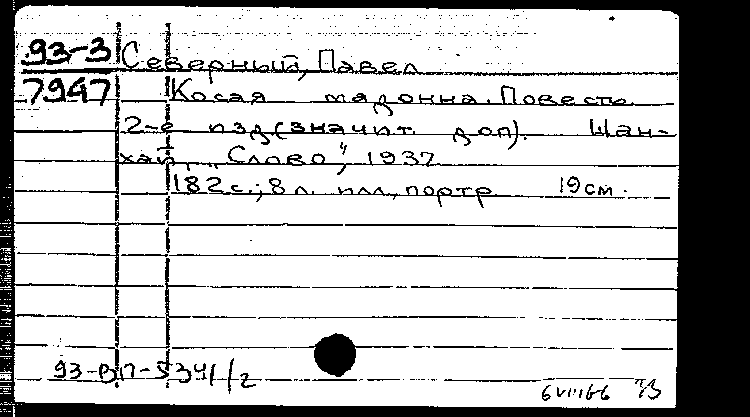 93-3 Северный, Павел
7947 Косая мадонна. Повесть
2-е изд(значит. доп). Шан-
хай, „Слово“, 1937
182 с.; 8 л. илл, портр 19 см.
93-ВП-5341/2